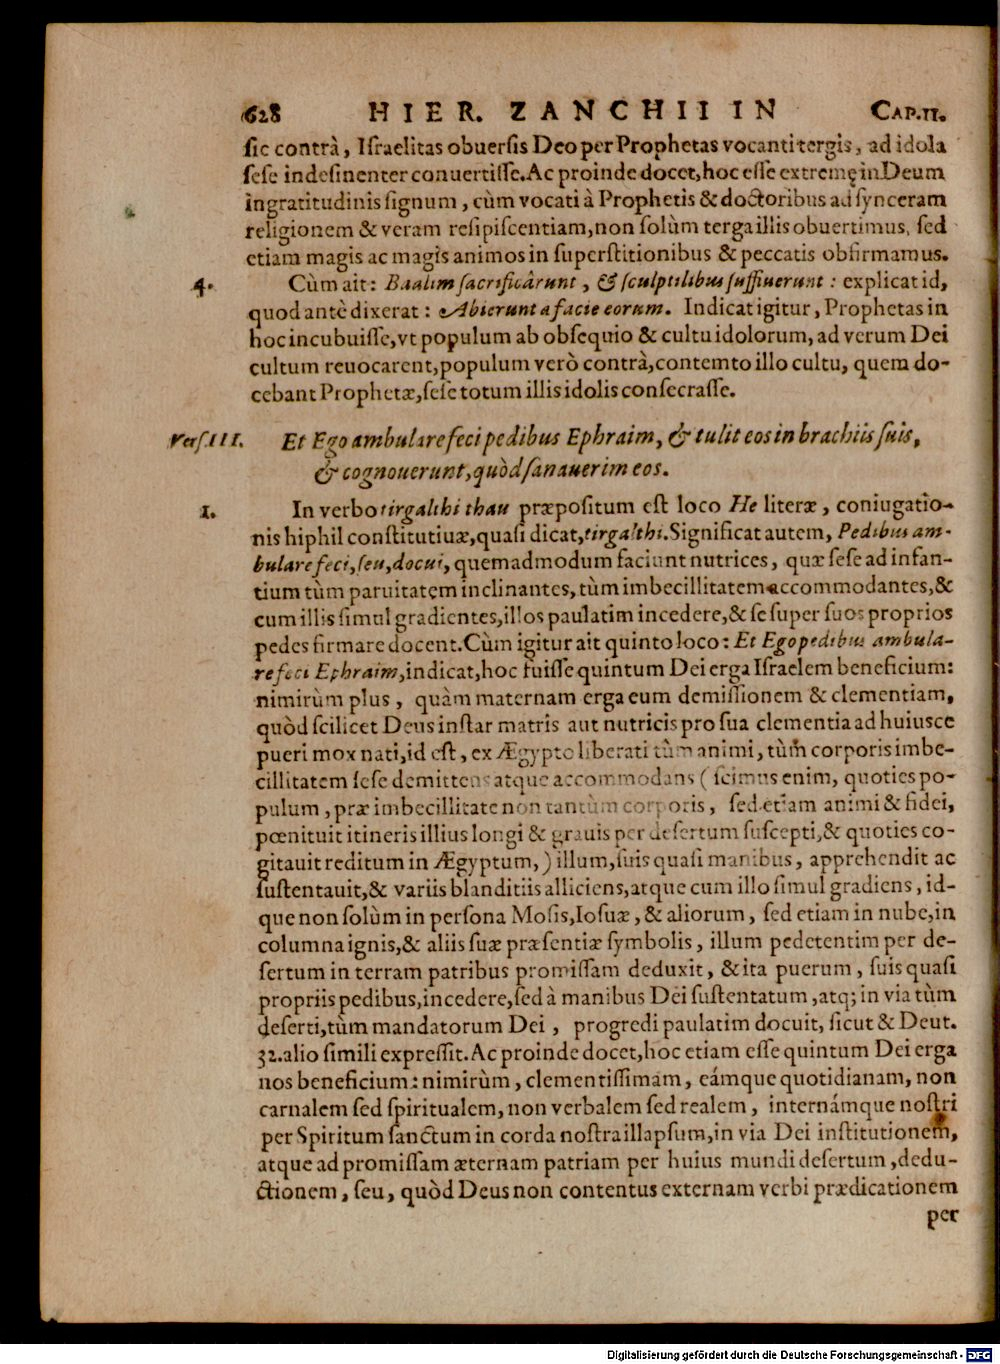 628 HIER. ZANCHII IN CAP.II.
sic contrà, Israelitas obuersis Deo per Prophetas vocanti tergis, ad idola
sese indesinenter conuertisse. Ac proinde docet, hoc esse extremę in Deum
ingratitudinis signum, cùm vocati à Prophetis & doctoribus ad synceram
religionem & veram resipiscentiam, non solùm terga illis obuertimus, sed
etiam magis ac magis animos in superstitionibus & peccatis obfirmamus.
4. Cùm ait: Baalim sacrificârunt, & sculptilibus suffiuerunt: explicat id,
quod antè dixerat: Abierunt a facie eorum. Indicat igitur, Prophetas in
hoc incubuisse, vt populum ab obsequio & cultu idolorum, ad verum Dei
cultum reuocarent, populum verò contrà, contemto illo cultu, quem do-
cebant Prophetæ, sese totum illis idolis consecrasse.
Vers. III. Et Ego ambulare feci pedibus Ephraim, & tulit eos in brachiis suis,
& cognouerunt, quòd sanauerim eos.
1. In verbo tirgalthi thau præpositum est loco He literæ, coniugatio-
nis hiphil constitutiuæ, quasi dicat, tirgalthi. Significat autem, Pedibus am-
bulare feci, seu, docui, quemadmodum faciunt nutrices, quæ sese ad infan-
tium tùm paruitatem inclinantes, tùm imbecillitatem accommodantes, &
cum illis simul gradientes, illos paulatim incedere, & se super suos proprios
pedes firmare docent. Cùm igitur ait quinto loco: Et Ego pedibus ambula-
re feci Ephraim, indicat, hoc fuisse quintum Dei erga Israelem beneficium:
nimirùm plus, quàm maternam erga eum demissionem & clementiam,
quòd scilicet Deus instar matris aut nutricis pro sua clementia ad huiusce
pueri mox nati, id est, ex Ægypto liberati tùm animi, tùm corporis imbe-
cillitatem sese demittens atque accommodans (scimus enim, quoties po-
pulum, præ imbecillitate non tantùm corporis, sed etiam animi & fidei,
pœnituit itineris illius longi & grauis per desertum suscepti, & quoties co-
gitauit reditum in Ægyptum,) illum, suis quasi manibus, apprehendit ac
sustentauit, & variis blanditiis alliciens, atque cum illo simul gradiens, id-
que non solùm in persona Mosis, Iosuæ, & aliorum, sed etiam in nube, in
columna ignis, & aliis suæ præsentiæ symbolis, illum pedetentim per de-
sertum in terram patribus promissam deduxit, & ita puerum, suis quasi
propriis pedibus, incedere, sed à manibus Dei sustentatum, atq; in via tùm
deserti, tùm mandatorum Dei, progredi paulatim docuit, sicut & Deut.
32. alio simili expressit. Ac proinde docet, hoc etiam esse quintum Dei erga
nos beneficium: nimirùm, clementissimam, eámque quotidianam, non
carnalem sed spiritualem, non verbalem sed realem, internámque nostri
per Spiritum sanctum in corda nostra illapsum, in via Dei institutionem,
atque ad promissam æternam patriam per huius mundi desertum, dedu-
ctionem, seu, quòd Deus non contentus externam verbi prædicationem
per
Digitalisierung gefördert durch die Deutsche Forschungsgemeinschaft - DFG